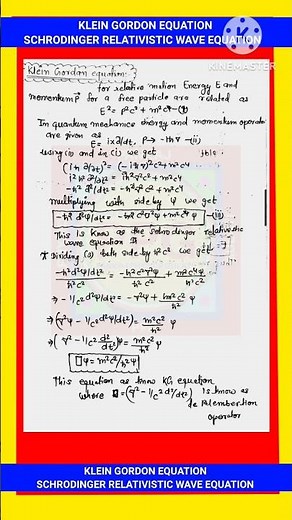 KLEIN GORDON EQUATION
SCHRODINGER RELATIVISTIC WAVE EQUATION
KINEMASTER
Klein Gordan equation:
for relative motion Energy E and
momentum P for a free particle are related as
E² = P²c² + m²c⁴ -(i)
In quantum mechanics energy and momentum operator
are given as
E = iħ∂/∂t, P → -iħ∇ -(ii)
using (ii) and in (i) we get
(iħ ∂/∂t)² = (-iħ∇)²c² + m²c⁴
i²ħ² ∂²/∂t² = i²ħ²∇²c² + m²c⁴
-ħ² ∂²/dt² = -ħ²∇²c² + m²c⁴
multiplying with side by ψ we get
-ħ² d²ψ/dt² = -ħ²c²∇²ψ + m²c⁴ψ -(iii)
This is know as the schrodinger relativistic
wave equation
Dividing (3) both side by ħ²c² we get
-ħ²d²ψ/dt² / ħ²c² = -ħ²c²∇²ψ / ħ²c² + m²c⁴ψ / ħ²c²
⇒ -1/c² d²ψ/dt² = -∇²ψ + m²c²/ħ² ψ
⇒ (∇²ψ - 1/c² d²ψ/dt²) = m²c²/ħ² ψ
⇒ (∇² - 1/c² d²/dt²)ψ = m²c²/ħ² ψ
□ψ = m²c²/ħ² ψ
This equation as know KG equation
where □ = (∇² - 1/c² d²/dt²) is know as
de Palembertion
operator
KLEIN GORDON EQUATION
SCHRODINGER RELATIVISTIC WAVE EQUATION